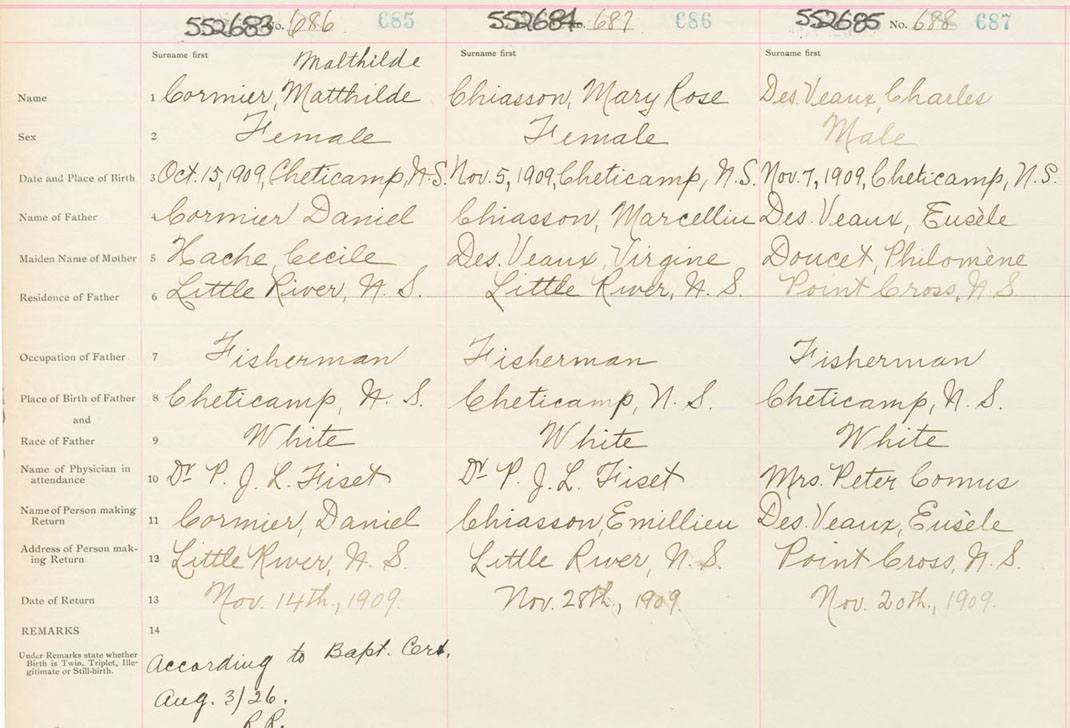 552683 No. 686 685 552684 No. 687 686 552685 No. 688 687
Surname first Surname first Surname first
Malthilde
Name 1 Cormier, Matthilde Chiasson, Mary Rose Des. Veaux, Charles
Sex 2 Female Female Male
Date and Place of Birth 3 Oct. 15, 1909, Cheticamp, N.S. Nov. 5, 1909, Cheticamp, N.S. Nov. 7, 1909, Cheticamp, N.S.
Name of Father 4 Cormier Daniel Chiasson, Marcellin Des. Veaux, Eusèle
Maiden Name of Mother 5 Hache, Cecile Des. Veaux, Virgine Doucet, Philomène
Residence of Father 6 Little River, N. S. Little River, N. S. Point Cross, N. S
Occupation of Father 7 Fisherman Fisherman Fisherman
Place of Birth of Father 8 Cheticamp, N. S. Cheticamp, N. S. Cheticamp, N. S.
and
Race of Father 9 White White White
Name of Physician in
attendance 10 Dr P. J. L. Fiset Dr P. J. L. Fiset Mrs. Peter Comus
Name of Person making
Return 11 Cormier, Daniel Chiasson, Emillieu Des. Veaux, Eusèle
Address of Person mak-
ing Return 12 Little River, N. S. Little River, N. S. Point Cross, N. S.
Date of Return 13 Nov. 14th., 1909. Nov. 28th., 1909. Nov. 20th., 1909.
REMARKS 14
Under Remarks state whether
Birth is Twin, Triplet, Ille-
gitimate or Still-birth.
According to Bapt. Cert.
Aug. 3/26.
R.R.